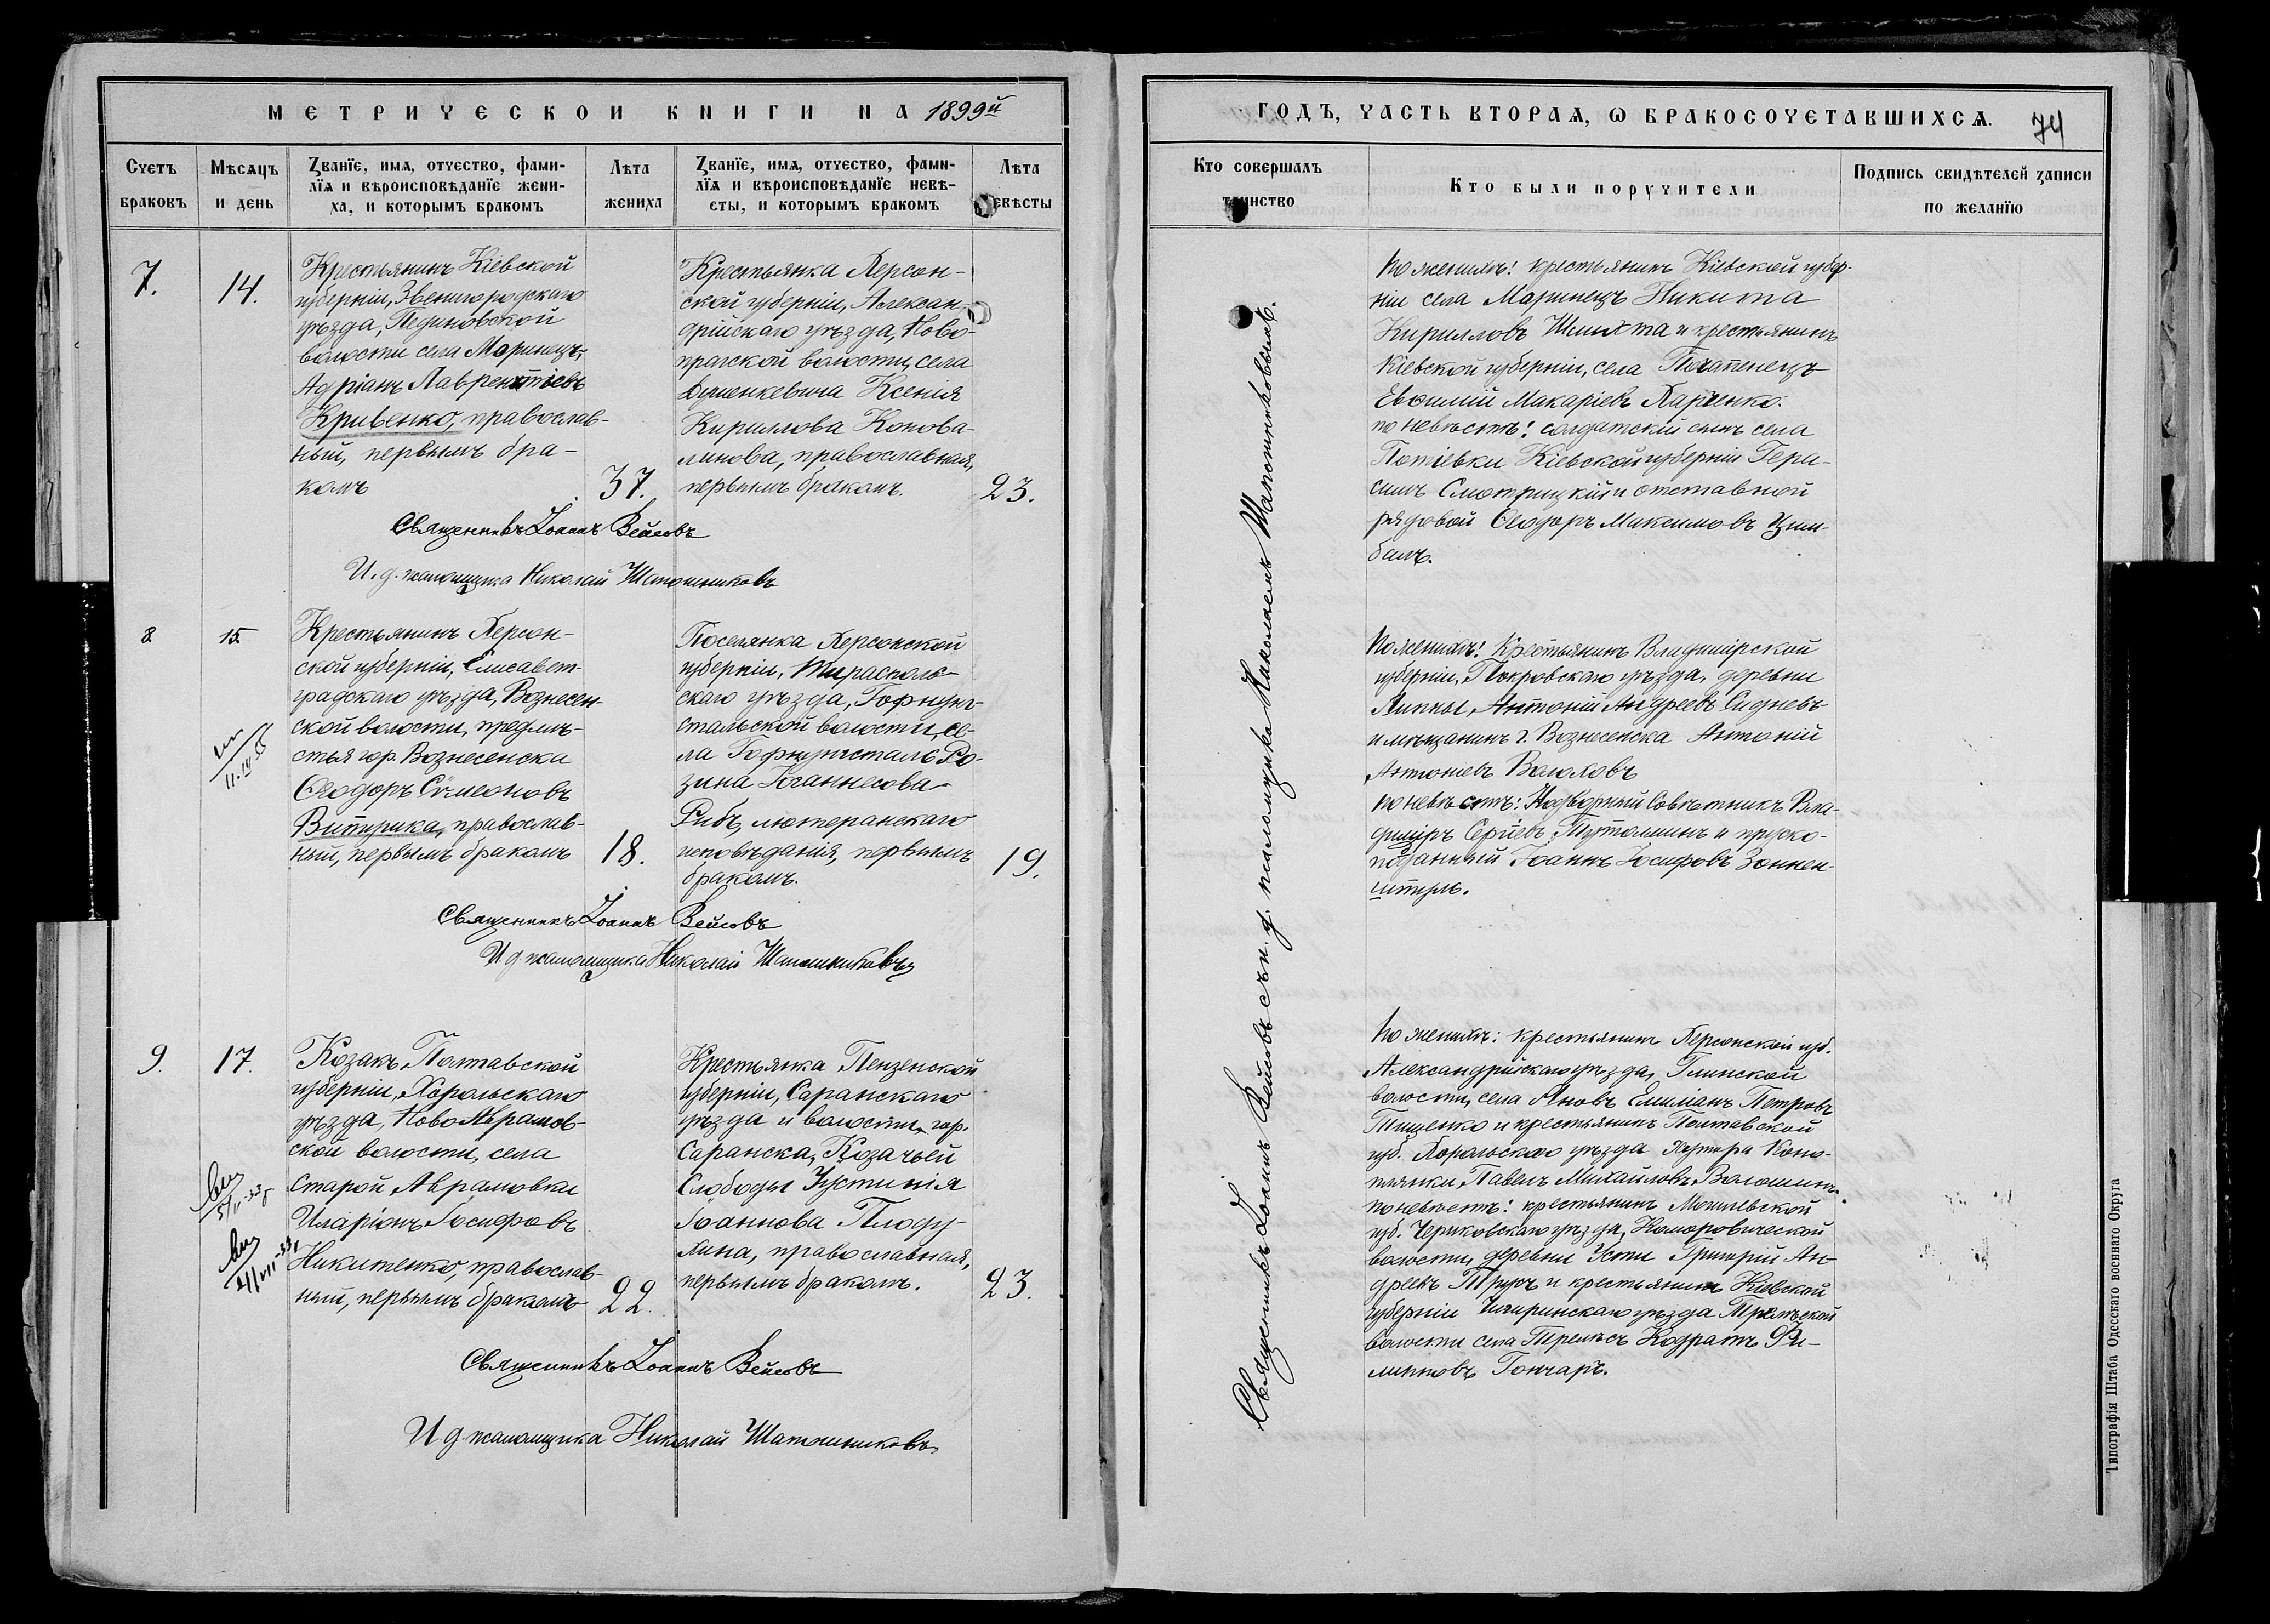 МЕТРИЧЕСКОЙ КНИГИ НА 1899й
Счетъ браковъ
Мѣсяцъ и день
Званїе, имя, отчество, фами-
лїя и вѣроисповѣданїе жени-
ха, и которымъ бракомъ
Лѣта жениха
Званїе, имя, отчество, фами-
лїя и вѣроисповѣданїе невѣ-
сты, и которымъ бракомъ
Лѣта невѣсты
7.
14.
Крестьянинъ Кіевской
губерніи, Звенигородскаго
уѣзда, Пединовской
волости села Моринецъ,
Адріанъ Лаврентіевъ
Кривенко, православ-
ный, первымъ бра-
комъ
37.
Крестьянка Херсон-
ской губерніи, Алексан-
дрійскаго уѣзда, Ново-
прагской волости, села
Ксенія
Кириллова Конова-
линова, православная,
первымъ бракомъ.
23.
Священникъ Іоаннъ Вейсовъ
И. д. псаломщика Николай Шапошниковъ
8
15
Крестьянинъ Херсон-
ской губерніи, Елисавет-
градскаго уѣзда, Вознесен-
ской волости, предмѣ-
стья гор. Вознесенска
Ѳеодоръ Сѵмеоновъ
православ-
ный, первымъ бракомъ
18.
Поселянка Херсонской
губерніи, Тирасполь-
скаго уѣзда, Гофнунг-
стальской волости, се-
ла Гофнунгсталь Ро-
зина Іоганнесова
Рибъ, лютеранскаго
исповѣданія, первымъ
бракомъ.
19.
Священникъ Іоаннъ Вейсовъ
И д. псаломщика Николай Шапошниковъ
9.
17.
Козакъ Полтавской
губерніи, Хорольскаго
уѣзда, Ново Аврамов-
ской волости, села
Старой Аврамовки
Иларіонъ Іосифовъ
Никитенко, православ-
ный, первымъ бракомъ
22.
Крестьянка Пензенской
губерніи, Саранскаго
уѣзда и волости, гор.
Саранска, Козачьей
Слободы Іустинія
Іоаннова Плоду-
хина, православная,
первымъ бракомъ.
23.
Священникъ Іоаннъ Вейсовъ
И д псаломщика Николай Шапошниковъ
ГОДЪ, ЧАСТЬ ВТОРАЯ, Ѡ БРАКОСОЧЕТАВШИХСЯ.
74
Кто совершалъ таинство
Кто были поручители
Подпись свидѣтелей записи
по желанїю
Священникъ Іоаннъ Вейсовъ съ и. д. псаломщика Николаемъ Шапошниковымъ.
По женихѣ: крестьянинъ Кіевской губер-
ніи села Моринецъ Никита
Кирилловъ и крестьянинъ
Кіевской губерніи, села
Евѳимій Макаріевъ Харченко.
по невѣстѣ: солдатскій сынъ села
Потіевки Кіевской губерніи Гера-
симъ Смотрицкій и отставной
рядовой Ѳеодоръ Максимовъ Цим-
балъ.
По женихѣ: Крестьянинъ Владимірской
губерніи, Покровскаго уѣзда, деревни
Липны, Антоній Андреевъ Сидневъ
и мѣщанинъ г. Вознесенска Антоній
Антоніевъ Волоховъ
по невѣстѣ: Надворный Совѣтникъ Вла-
диміръ Сергіевъ Тутолминъ и прусско-
подданный Іоаннъ Іосифовъ Зоннен-
штуль.
По женихѣ: крестьянинъ Херсонской губ.
Александрійскаго уѣзда, Глинской
волости, села Яновъ Емиліанъ Петровъ
Тищенко и крестьянинъ Полтавской
губ. Хорольскаго уѣзда хутора Коно-
плянки, Павелъ Михайловъ Волошинъ.
по невѣстѣ: крестьянинъ Могилевской
губ. Чериковскаго уѣзда,
волости, деревни Усти Григорій Ан-
дреевъ и крестьянинъ Кіевской
губерніи Чигиринскаго уѣзда
волости села Кодратъ Фи-
липповъ Гончаръ.
Типографія Штаба Одесскаго военнаго Округа